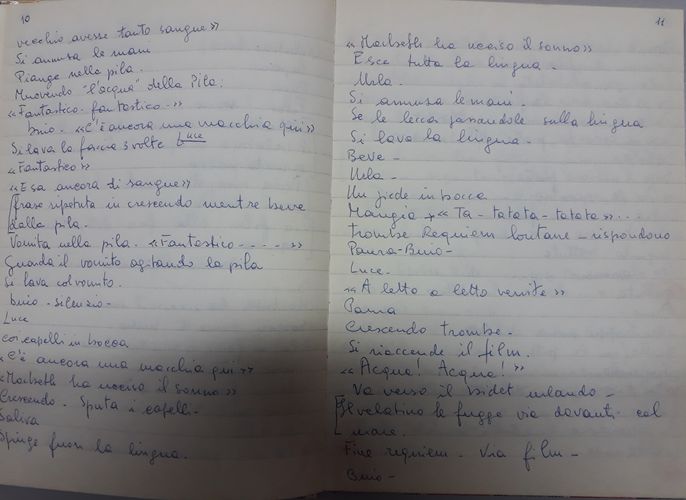 10
vecchio avesse tanto sangue»
Si annusa le mani
Piange nella pila.
Muovendo "l'acqua" della Pila.
«Fantastico - fantastico - »
buio - «C'è ancora una macchia qui»
Si lava la faccia 3 volte Luce
«Fantastico»
«E sa ancora di sangue»
frase ripetuta in crescendo mentre beve
dalla pila.
Vomita nella pila. «Fantastico - - - - »
Guarda il vomito agitando la pila
Si lava col vomito.
buio - silenzio -
Luce
coi capelli in bocca
«C'è ancora una macchia qui»
«Macbeth ha ucciso il sonno»
Crescendo - Sputa i capelli -
Saliva
Spinge fuori la lingua.
11
«Macbeth ha ucciso il sonno»
Esce tutta la lingua -
Urla -
Si annusa le mani -
Se le lecca passandole sulla lingua
Si lava la lingua -
Beve -
Urla -
Un piede in bocca
Mangia «Ta - tatata - tatata» . . .
trombe Requiem lontane - rispondono
Paura - Buio -
Luce -
«A letto a letto venite»
Paura
Crescendo trombe -
Si riaccende il film.
«Acqua! Acqua!»
Va verso il bidet urlando -
Il velatino le fugge via davanti col
mare.
Fine requiem - Via film -
Buio -